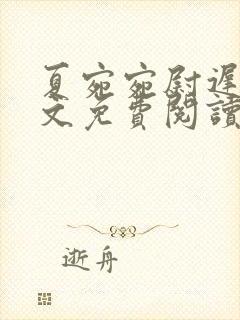 夏宛宛尉遲
文免費閱讀
逝舟